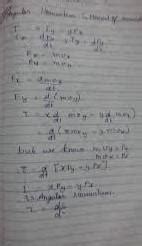 Angular Momentum & Moment of
τ = xFy - yFx
Fx = dPx/dt, Fy = dPy/dt
Px = mvx
Py = mvy
Fx = dmvx/dt
Fy = d/dt (mvy)
τ = x d/dt mvy - y d/dt mvx
= d/dt (x mvy - y mvx)
but we know mvy = Py
mvx = Px
τ = d/dt [xPy - yPx]
L = xPy - yPx
is Angular Momentum
τ = dL/dt